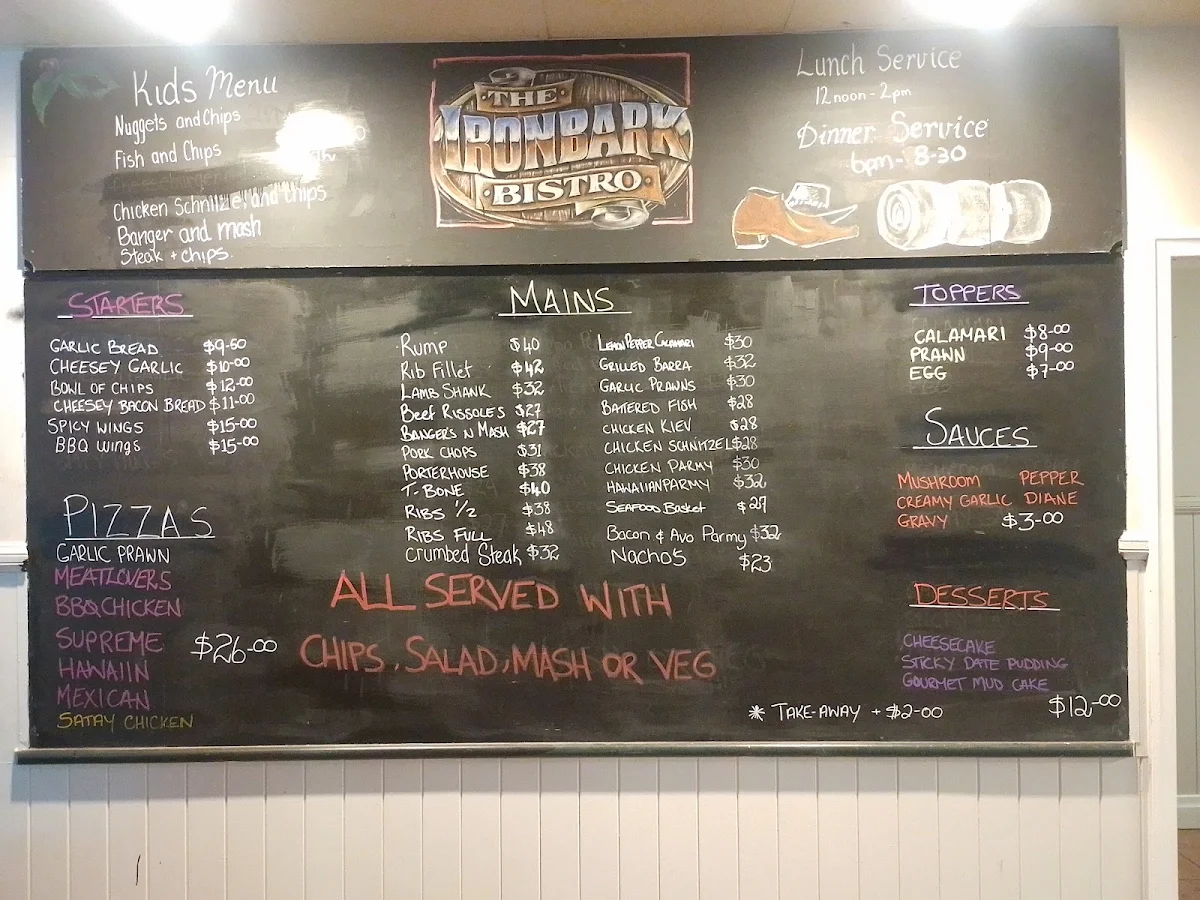 Kids Menu
Nuggets and Chips
Fish and Chips
Chicken Schnitzel and Chips
Banger and mash
Steak + chips.
THE
IRONBARK
BISTRO
Lunch Service
12noon - 2pm
Dinner Service
6pm - 8-30
STARTERS
GARLIC BREAD $9-50
CHEESEY GARLIC $10-00
BOWL OF CHIPS $12-00
CHEESEY BACON BREAD $11-00
SPICY WINGS $15-00
BBQ Wings $15-00
PIZZAS
GARLIC PRAWN
MEATLOVERS
BBQ CHICKEN
SUPREME $26-00
HAWAIIN
MEXICAN
SATAY CHICKEN
MAINS
Rump $40
Rib Fillet $42
LAMB SHANK $32
Beef Rissoles $27
BANGER'S N MASH $27
PORK CHOPS $31
PORTERHOUSE $38
T-BONE $40
RIBS 1/2 $38
RIBS FULL $48
Crumbed Steak $32
LEMON PEPPER CALAMARI $30
GRILLED BARRA $32
GARLIC PRAWNS $30
BATTERED FISH $28
CHICKEN KIEV $28
CHICKEN SCHNITZEL $28
CHICKEN PARMY $30
HAWAIIAN PARMY $32
SEAFOOD Basket $27
Bacon & Avo Parmy $32
Nachos $23
ALL SERVED WITH
CHIPS, SALAD, MASH OR VEG
TOPPERS
CALAMARI $8-00
PRAWN $9-00
EGG $7-00
SAUCES
MUSHROOM PEPPER
CREAMY GARLIC DIANE
GRAVY $3-00
DESSERTS
CHEESECAKE
STICKY DATE PUDDING
GOURMET MUD CAKE
$12-00
* TAKE-AWAY + $2-00